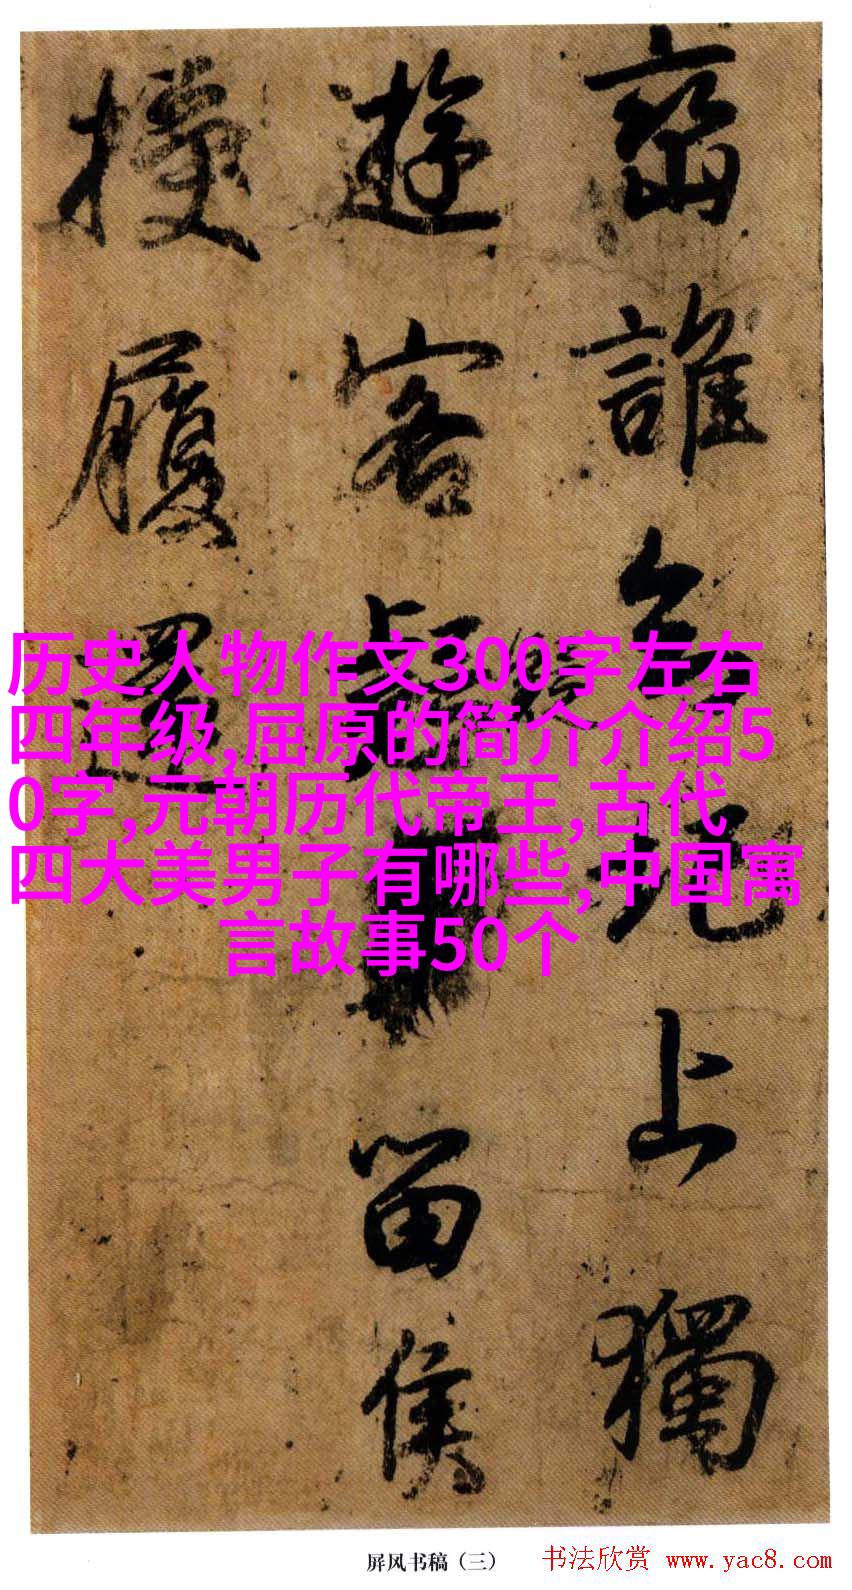 誰上獨
遊客留侯
履
历史人物作文300字左右
四年级,屈原的简介介绍5
0字,元朝历代帝王,古代
四大美男子有哪些,中国寓
言故事50个
屏风书稿（三）
书法欣赏 www.yac8.com